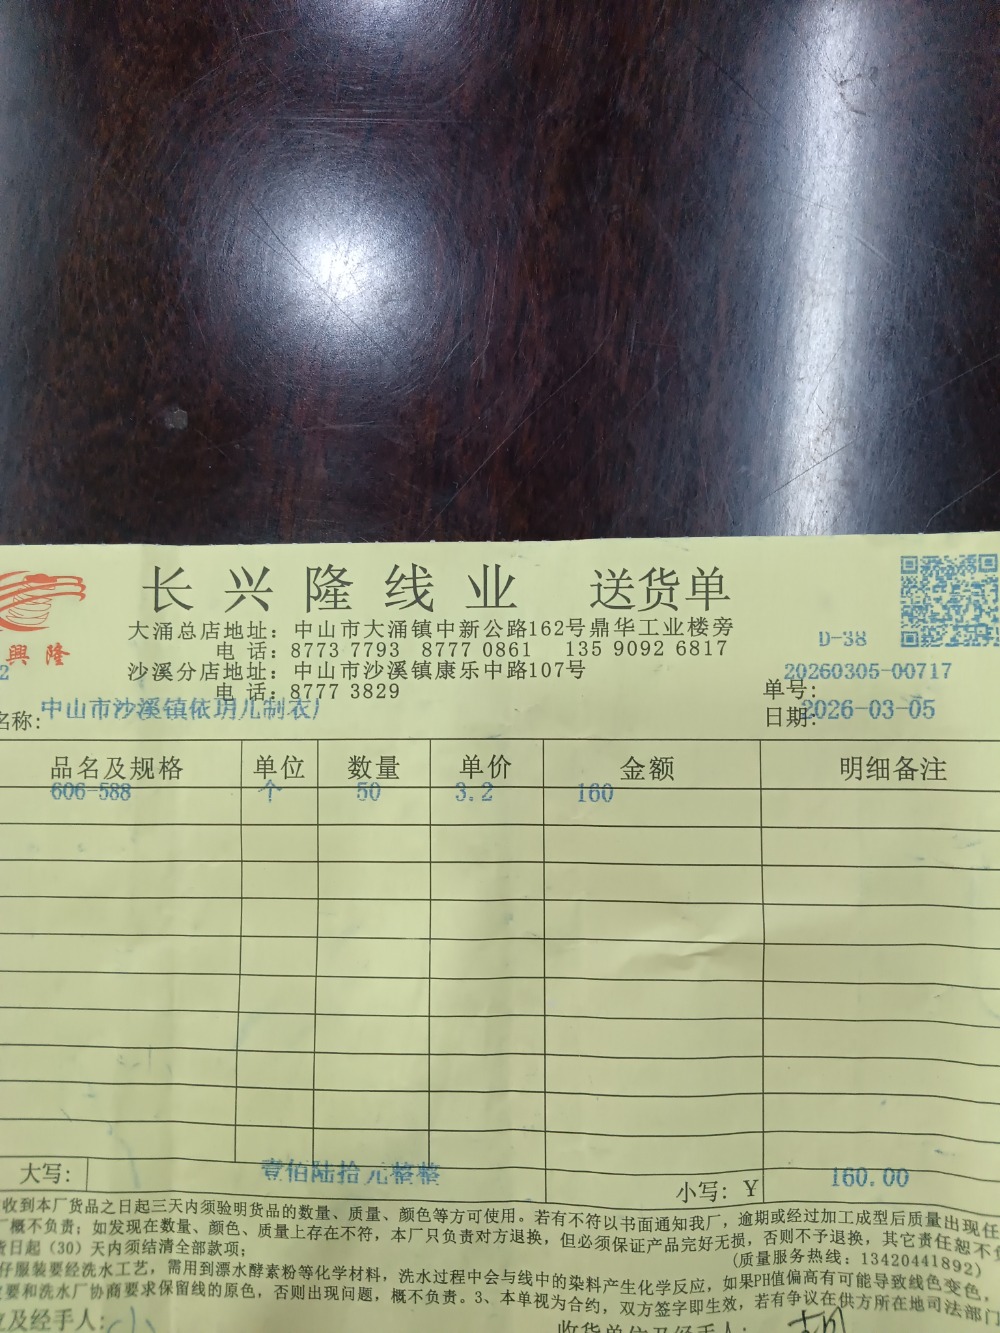 长兴隆线业 送货单
興隆
大涌总店地址：中山市大涌镇中新公路162号鼎华工业楼旁
D-38
电 话：8773 7793 8777 0861 135 9092 6817
沙溪分店地址：中山市沙溪镇康乐中路107号
2
20260305-00717
电 话：8777 3829
单号：
名称：中山市沙溪镇依玥儿制衣厂
日期：2026-03-05
品名及规格 单位 数量 单价 金额 明细备注
606-588 个 50 3.2 160
大写： 壹佰陆拾元整整
小写：Y 160.00
收到本厂货品之日起三天内须验明货品的数量、质量、颜色等方可使用。若有不符以书面通知我厂，逾期或经过加工成型后质量出现任
厂概不负责；如发现在数量、颜色、质量上存在不符，本厂只负责对方退换，但必须保证产品完好无损，否则不予退换，其它责任恕不负
货日起（30）天内须结清全部款项；
（质量服务热线：13420441892）
仔服装要经洗水工艺，需用到漂水酵素粉等化学材料，洗水过程中会与线中的染料产生化学反应，如果PH值偏高有可能导致线色变色，
要和洗水厂协商要求保留线的原色，否则出现问题，概不负责。3、本单视为合约，双方签字即生效，若有争议在供方所在地司法部门
及经手人：
收货单位及经手人：